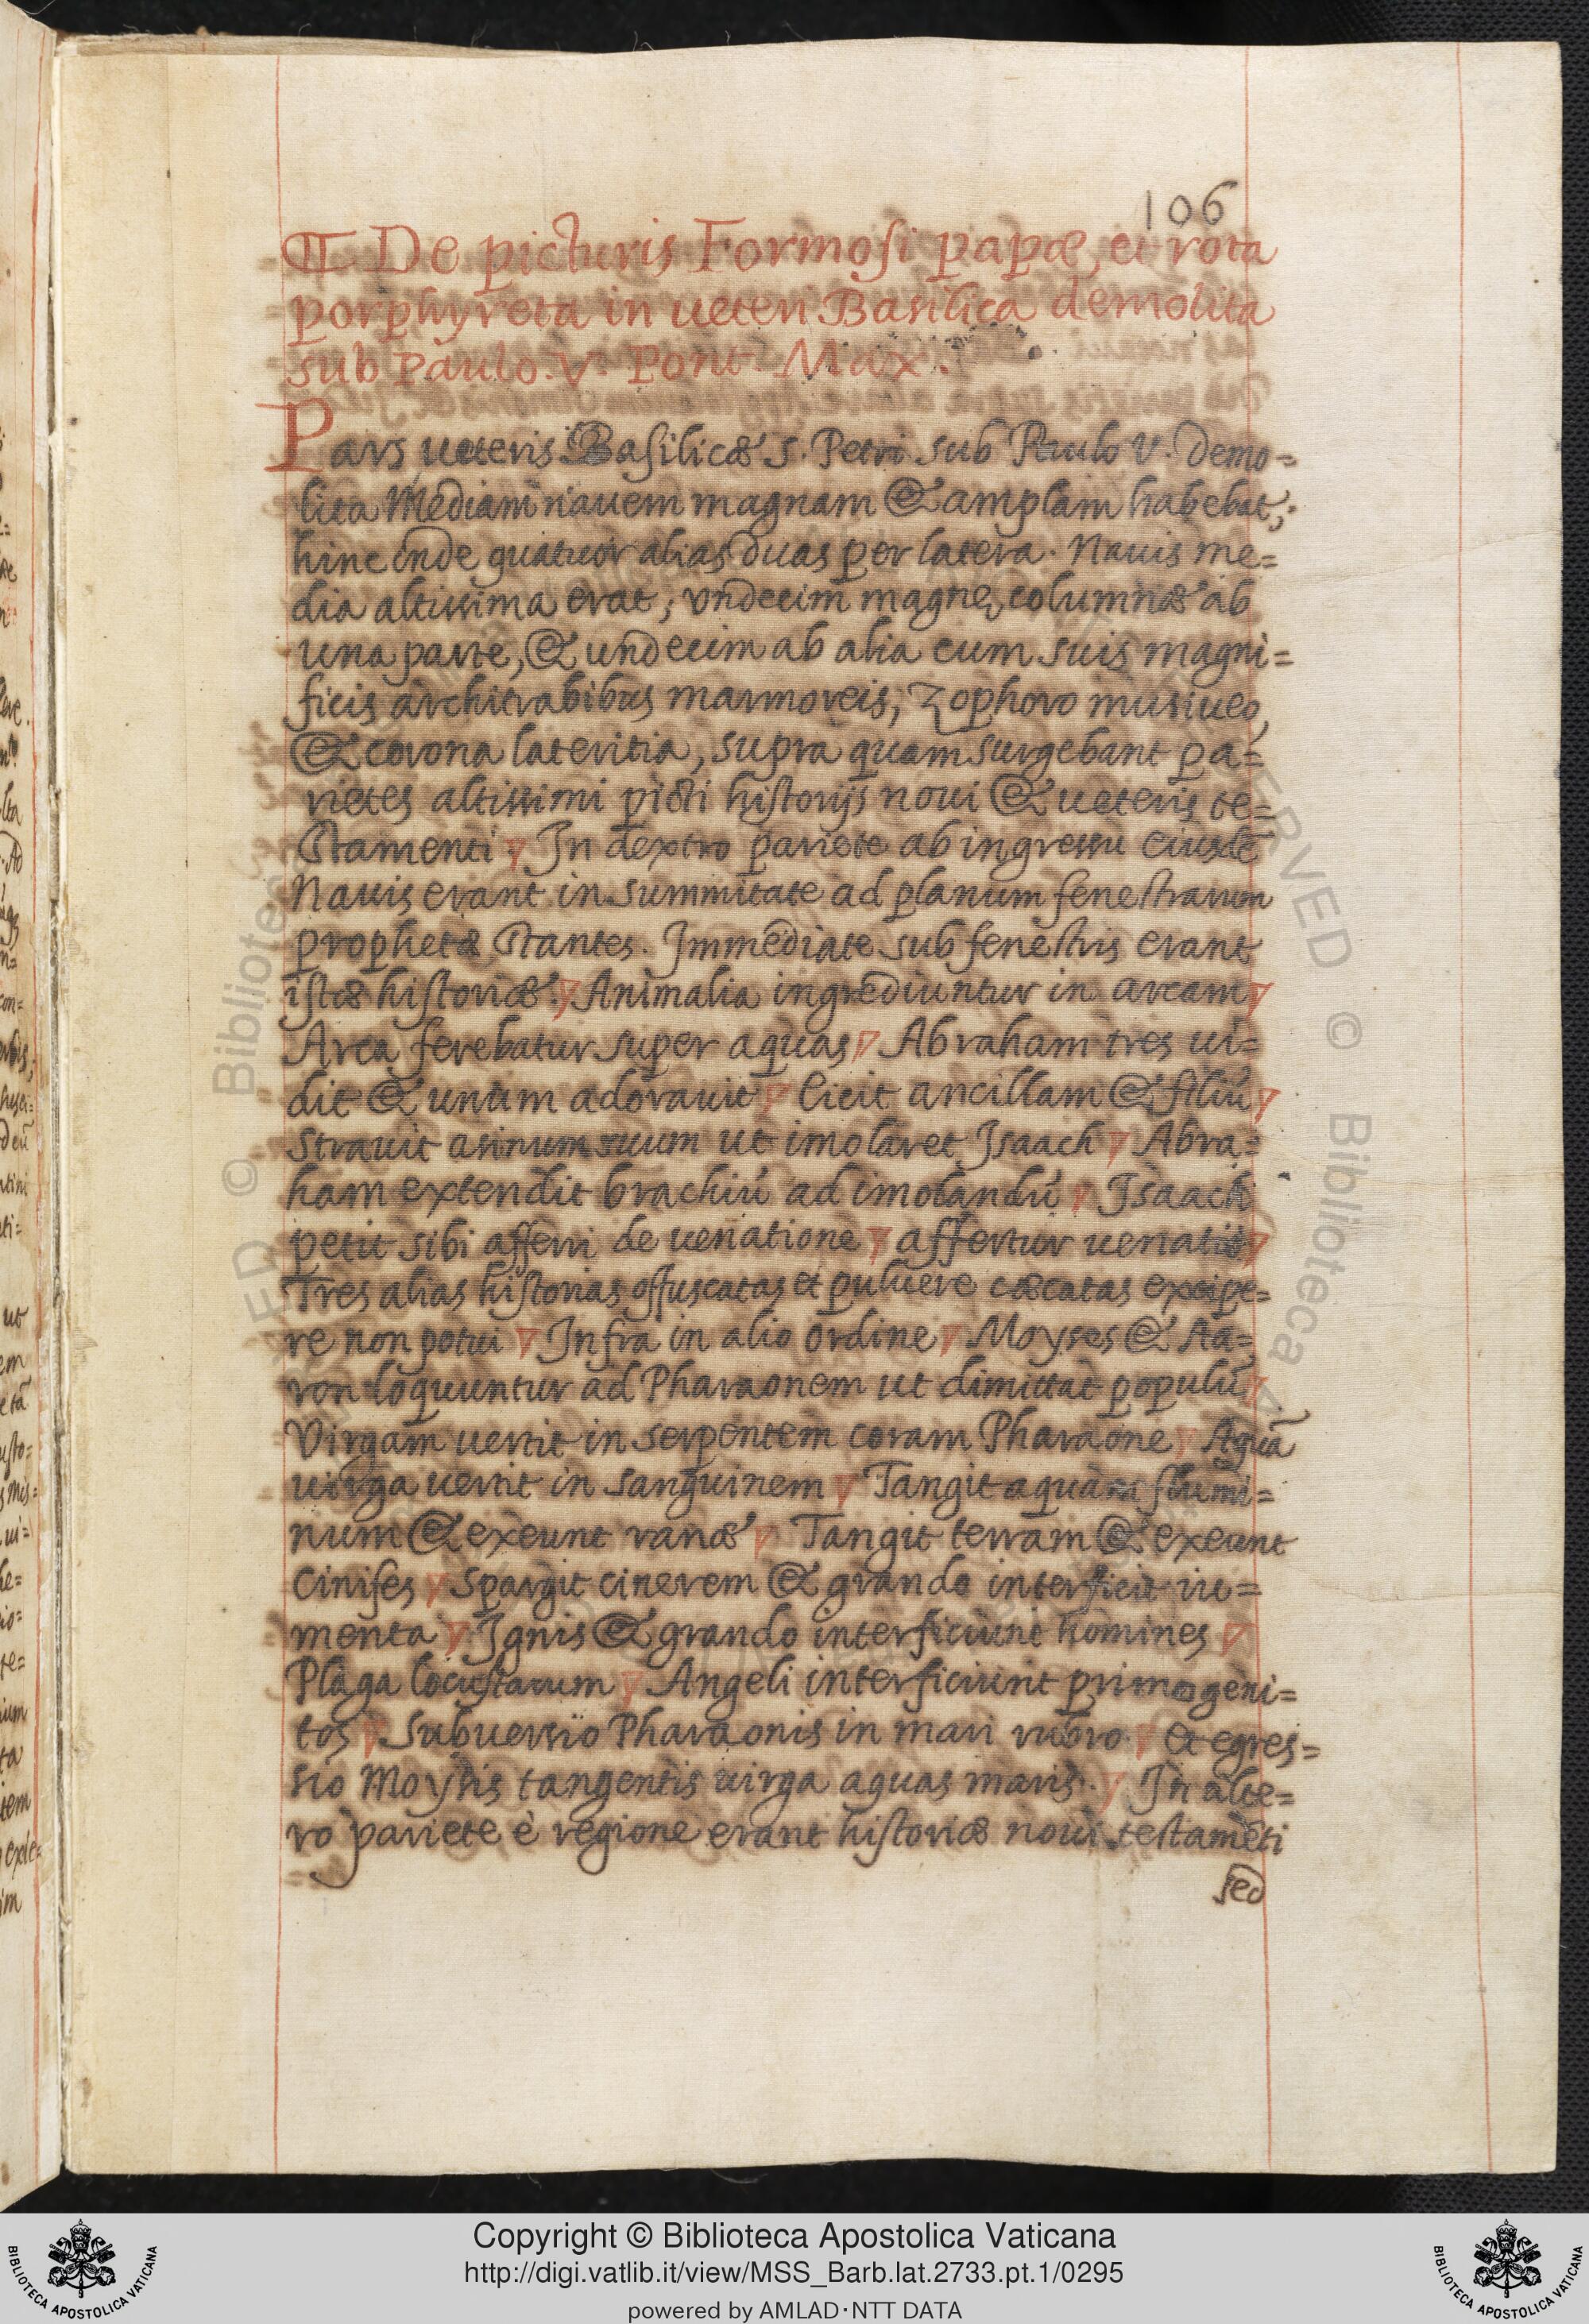 106
¶ De picturis Formosi papæ, et rota
porphyreta in ueteri Basilica demolita
sub Paulo. V. Pont. Max.
Pars ueteris Basilicæ S. Petri sub Paulo V. demo=
lita Mediam nauem magnam & amplam habebat;
hinc inde quatuor alias duas per latera. Nauis me=
dia altissima erat; vndecim magnę columnæ ab
una parte, & undecim ab alia cum suis magni=
ficis architrabibus marmoreis, Zophoro musiueo,
& corona lateritia, supra quam surgebant pa=
rietes altissimi picti historijs noui & ueteris te=
stamenti In dextro pariete ab ingressu eiusdē
Nauis erant in summitate ad planum fenestrarum
prophetæ stantes. Immediate sub fenestris erant
istæ historiæ. Animalia ingrediuntur in arcam
Arca ferebatur super aquas Abraham tres ui=
dit & unum adorauit Eicit ancillam & filiū
Strauit asinum suum ut imolaret Isaach Abra=
ham extendit brachiū ad imolandū Isaach
petit sibi afferri de uenatione affertur uenatio
Tres alias historias offuscatas et puluere cæcatas excipe=
re non potui Infra in alio ordine Moyses & Aa=
ron loquuntur ad Pharaonem ut dimittat populū
Virgam uertit in serpentem coram Pharaone Aquā
uirga uertit in sanguinem Tangit aquam flumi=
num & exeunt ranæ Tangit terram & exeunt
Cinifes Spargit cinerem & grando interficit iu=
menta Ignis & grando interficiunt homines
Plaga locustarum Angeli interficiunt primogeni=
tos Subuersio Pharaonis in mari rubro & egres=
sio Moysis tangentis uirga aquas maris. In alte=
ro pariete è regione erant historiæ noui testamēti
sed
Copyright © Biblioteca Apostolica Vaticana
http://digi.vatlib.it/view/MSS_Barb.lat.2733.pt.1/0295
powered by AMLAD·NTT DATA
BIBLIOTECA APOSTOLICA VATICANA
BIBLIOTECA APOSTOLICA VATICANA